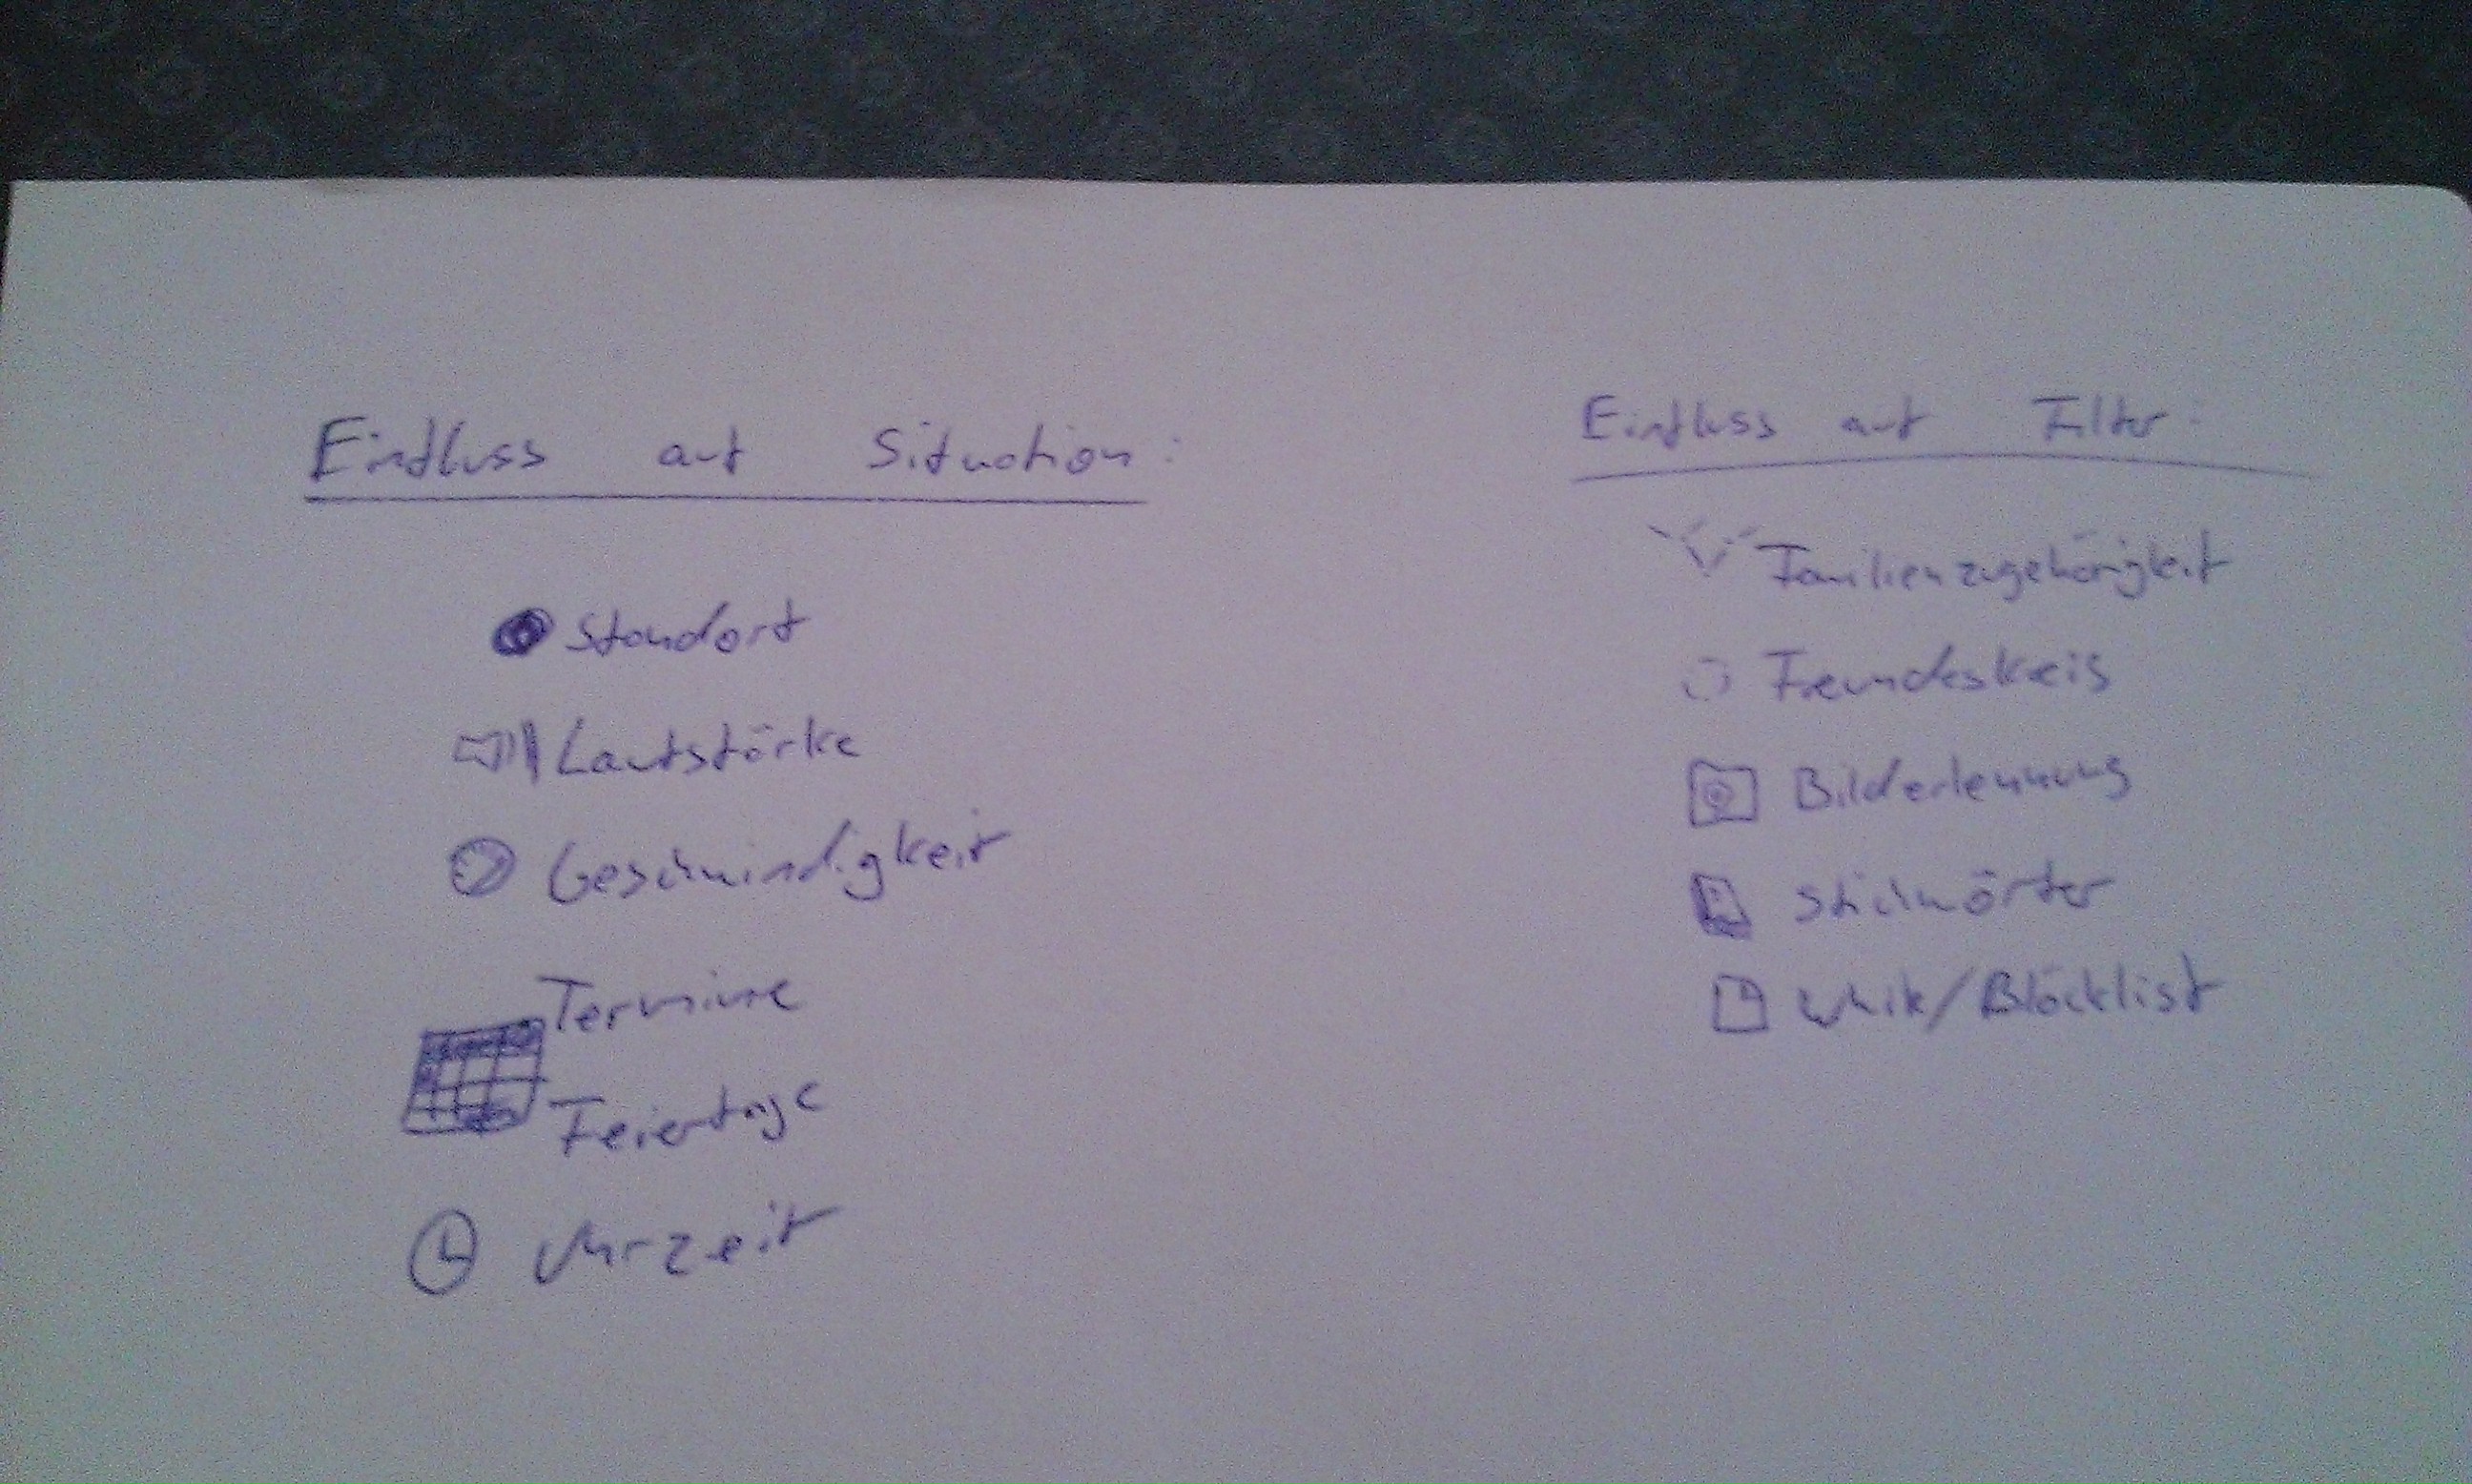 Einfluss auf Situation:
Standort
Lautstärke
Geschwindigkeit
Termine
Feiertage
Uhrzeit
Einfluss auf Filter:
Familienzugehörigkeit
Freundeskreis
Bilderkennung
Stichwörter
White/Blacklist